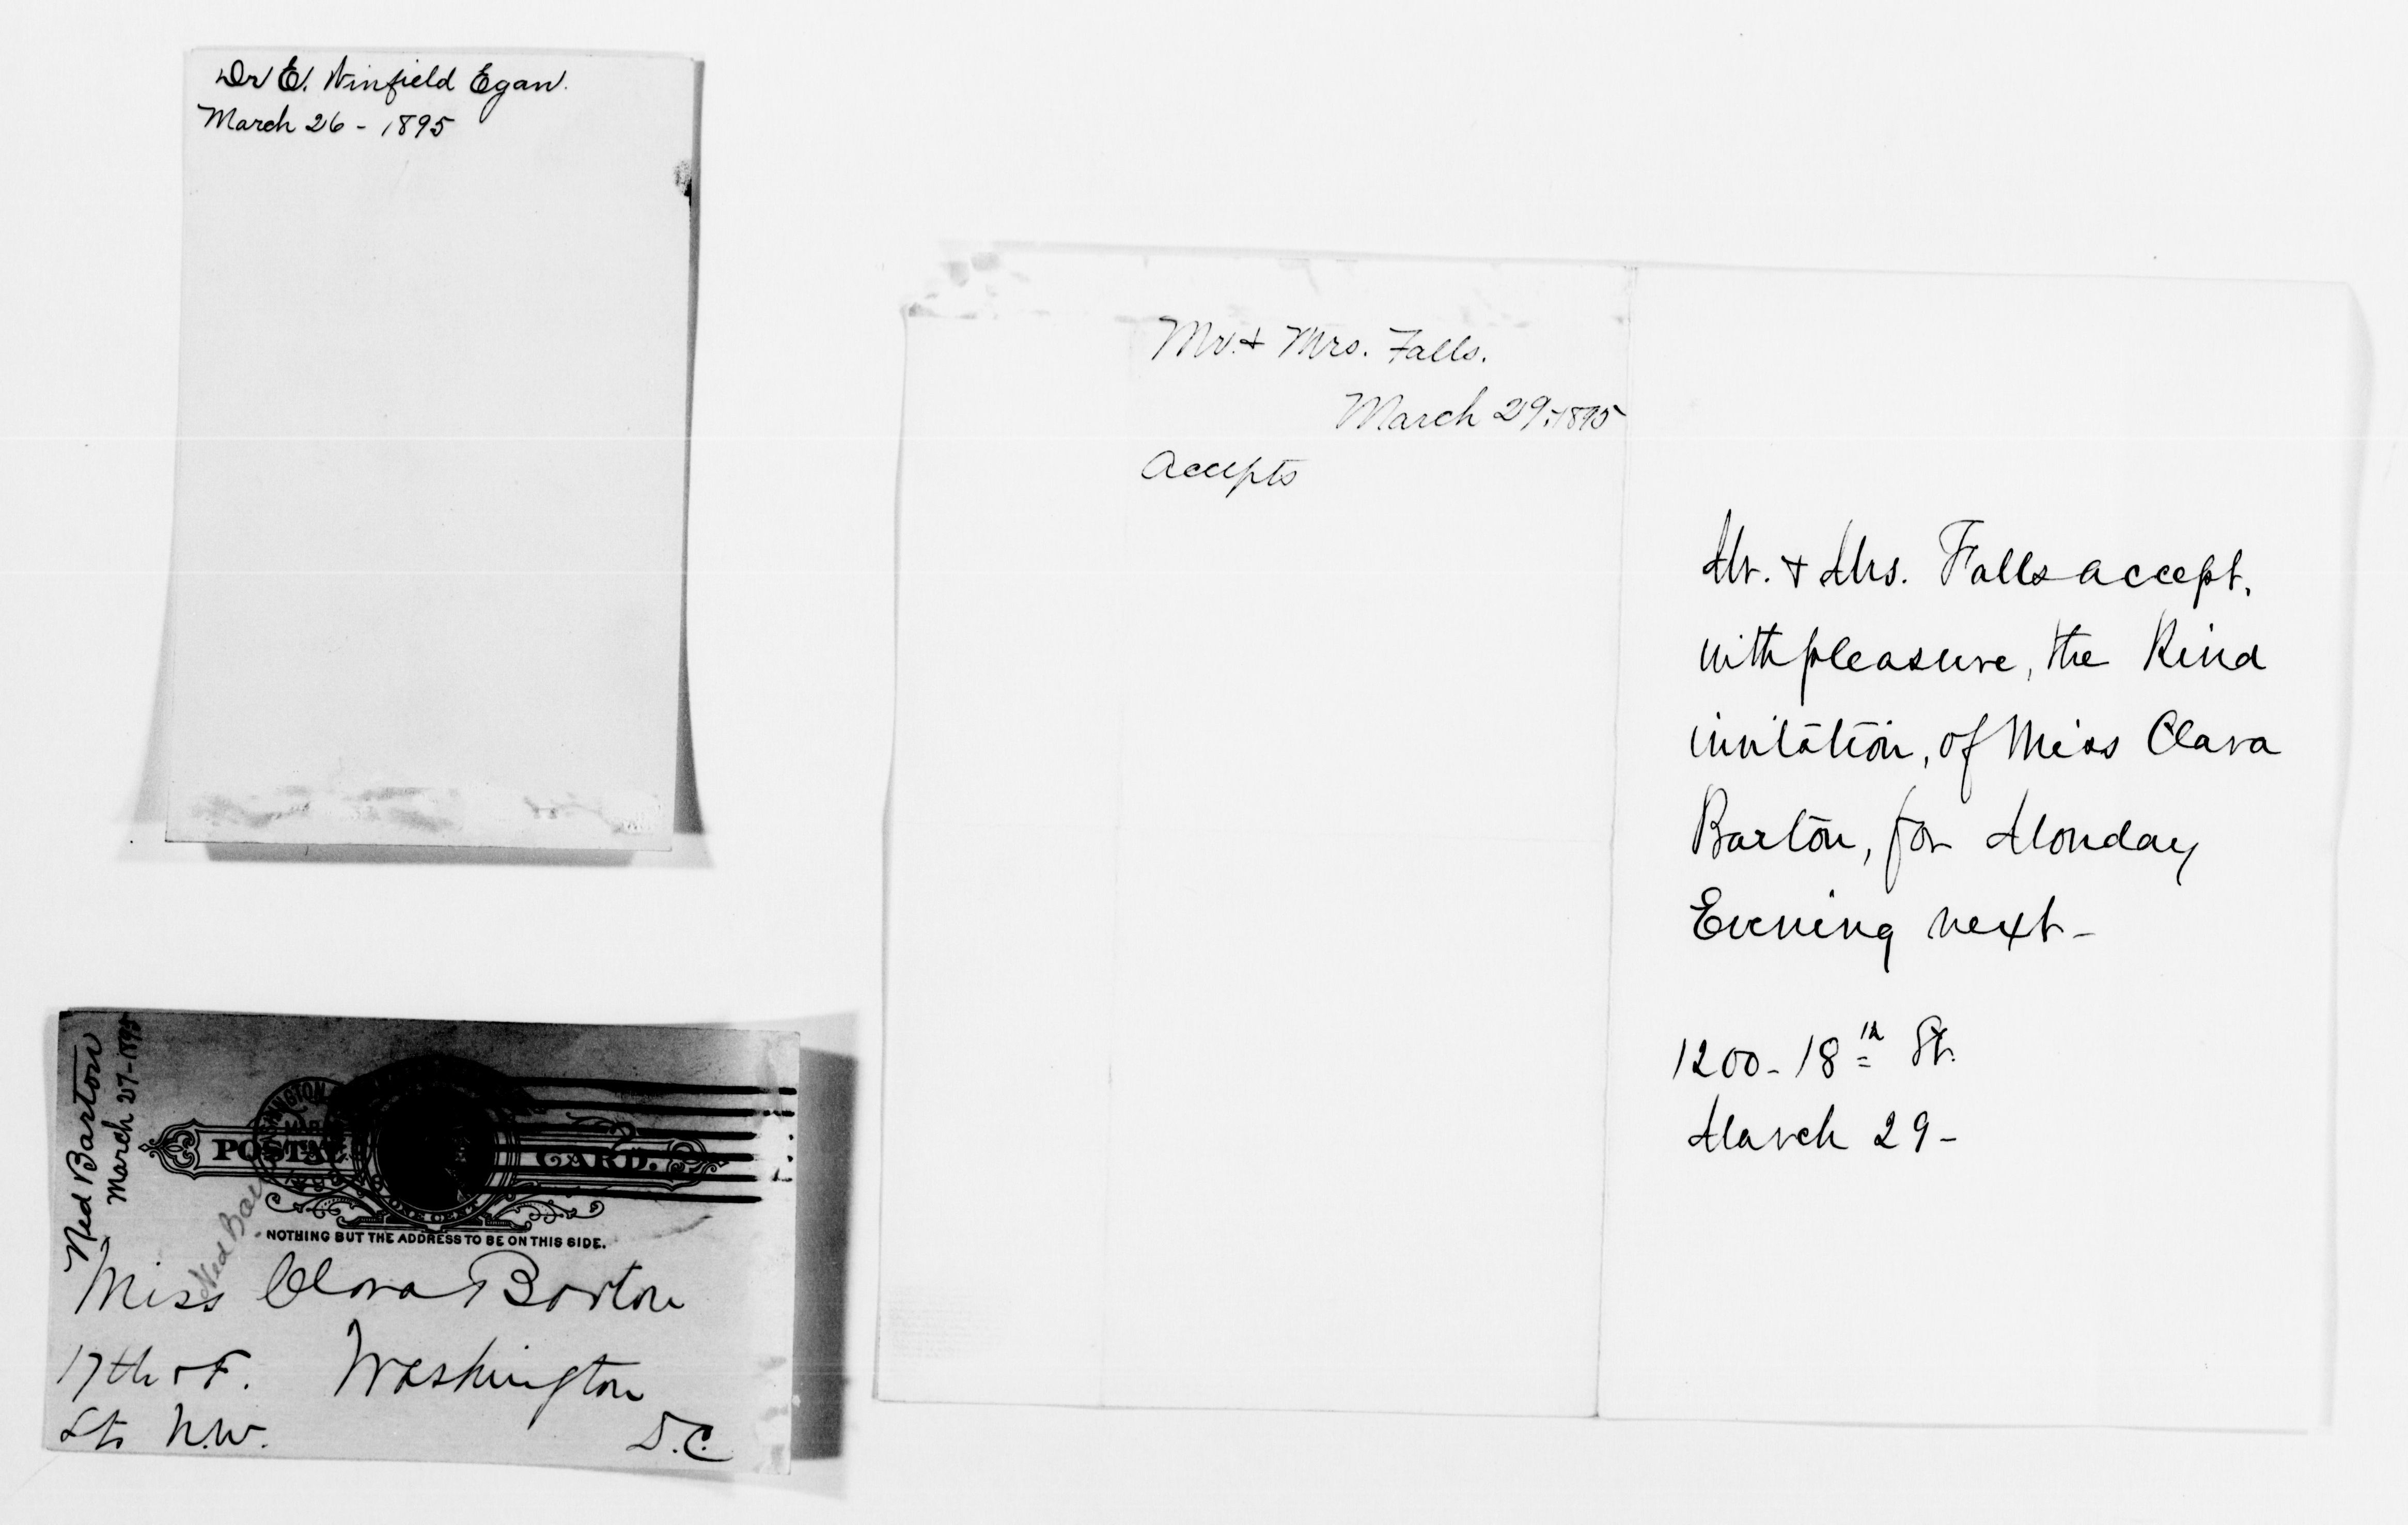 Dr E. Winfield Egan.
March 26 - 1895
Mr. & Mrs. Falls.
March 29, 1895
Accepts
Mr. & Mrs. Falls accept,
with pleasure, the Kind
invitation, of Miss Clara
Barton, for Monday
Evening next -
1200 - 18th St.
March 29 -
Ned Barton
March 27 - 1895
POSTAL CARD.
ONE CENT
NOTHING BUT THE ADDRESS TO BE ON THIS SIDE.
Ned Bar
Miss Clara Barton
17th & F. Washington
Sts N.W. D.C.